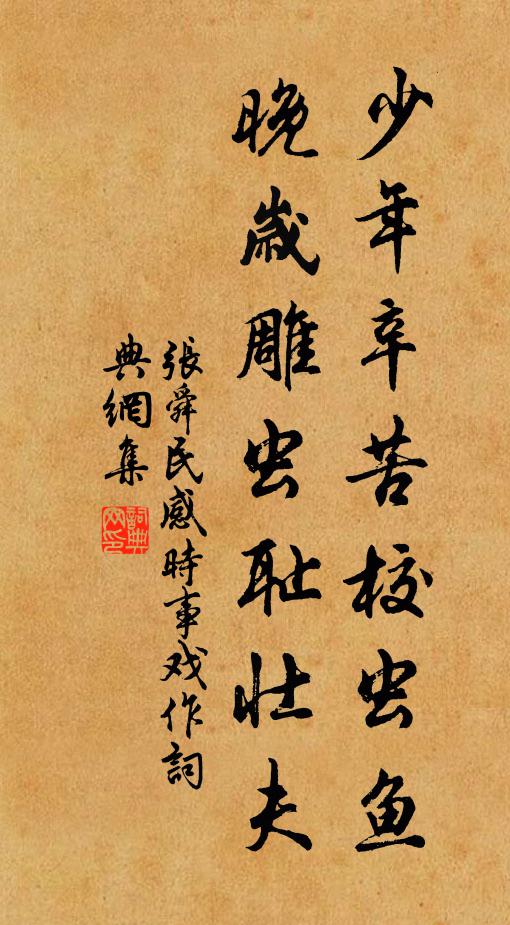 少年辛苦校虫鱼
晚岁雕虫耻壮夫
張舜民感時事戏作詞
典網集
詞典
网印